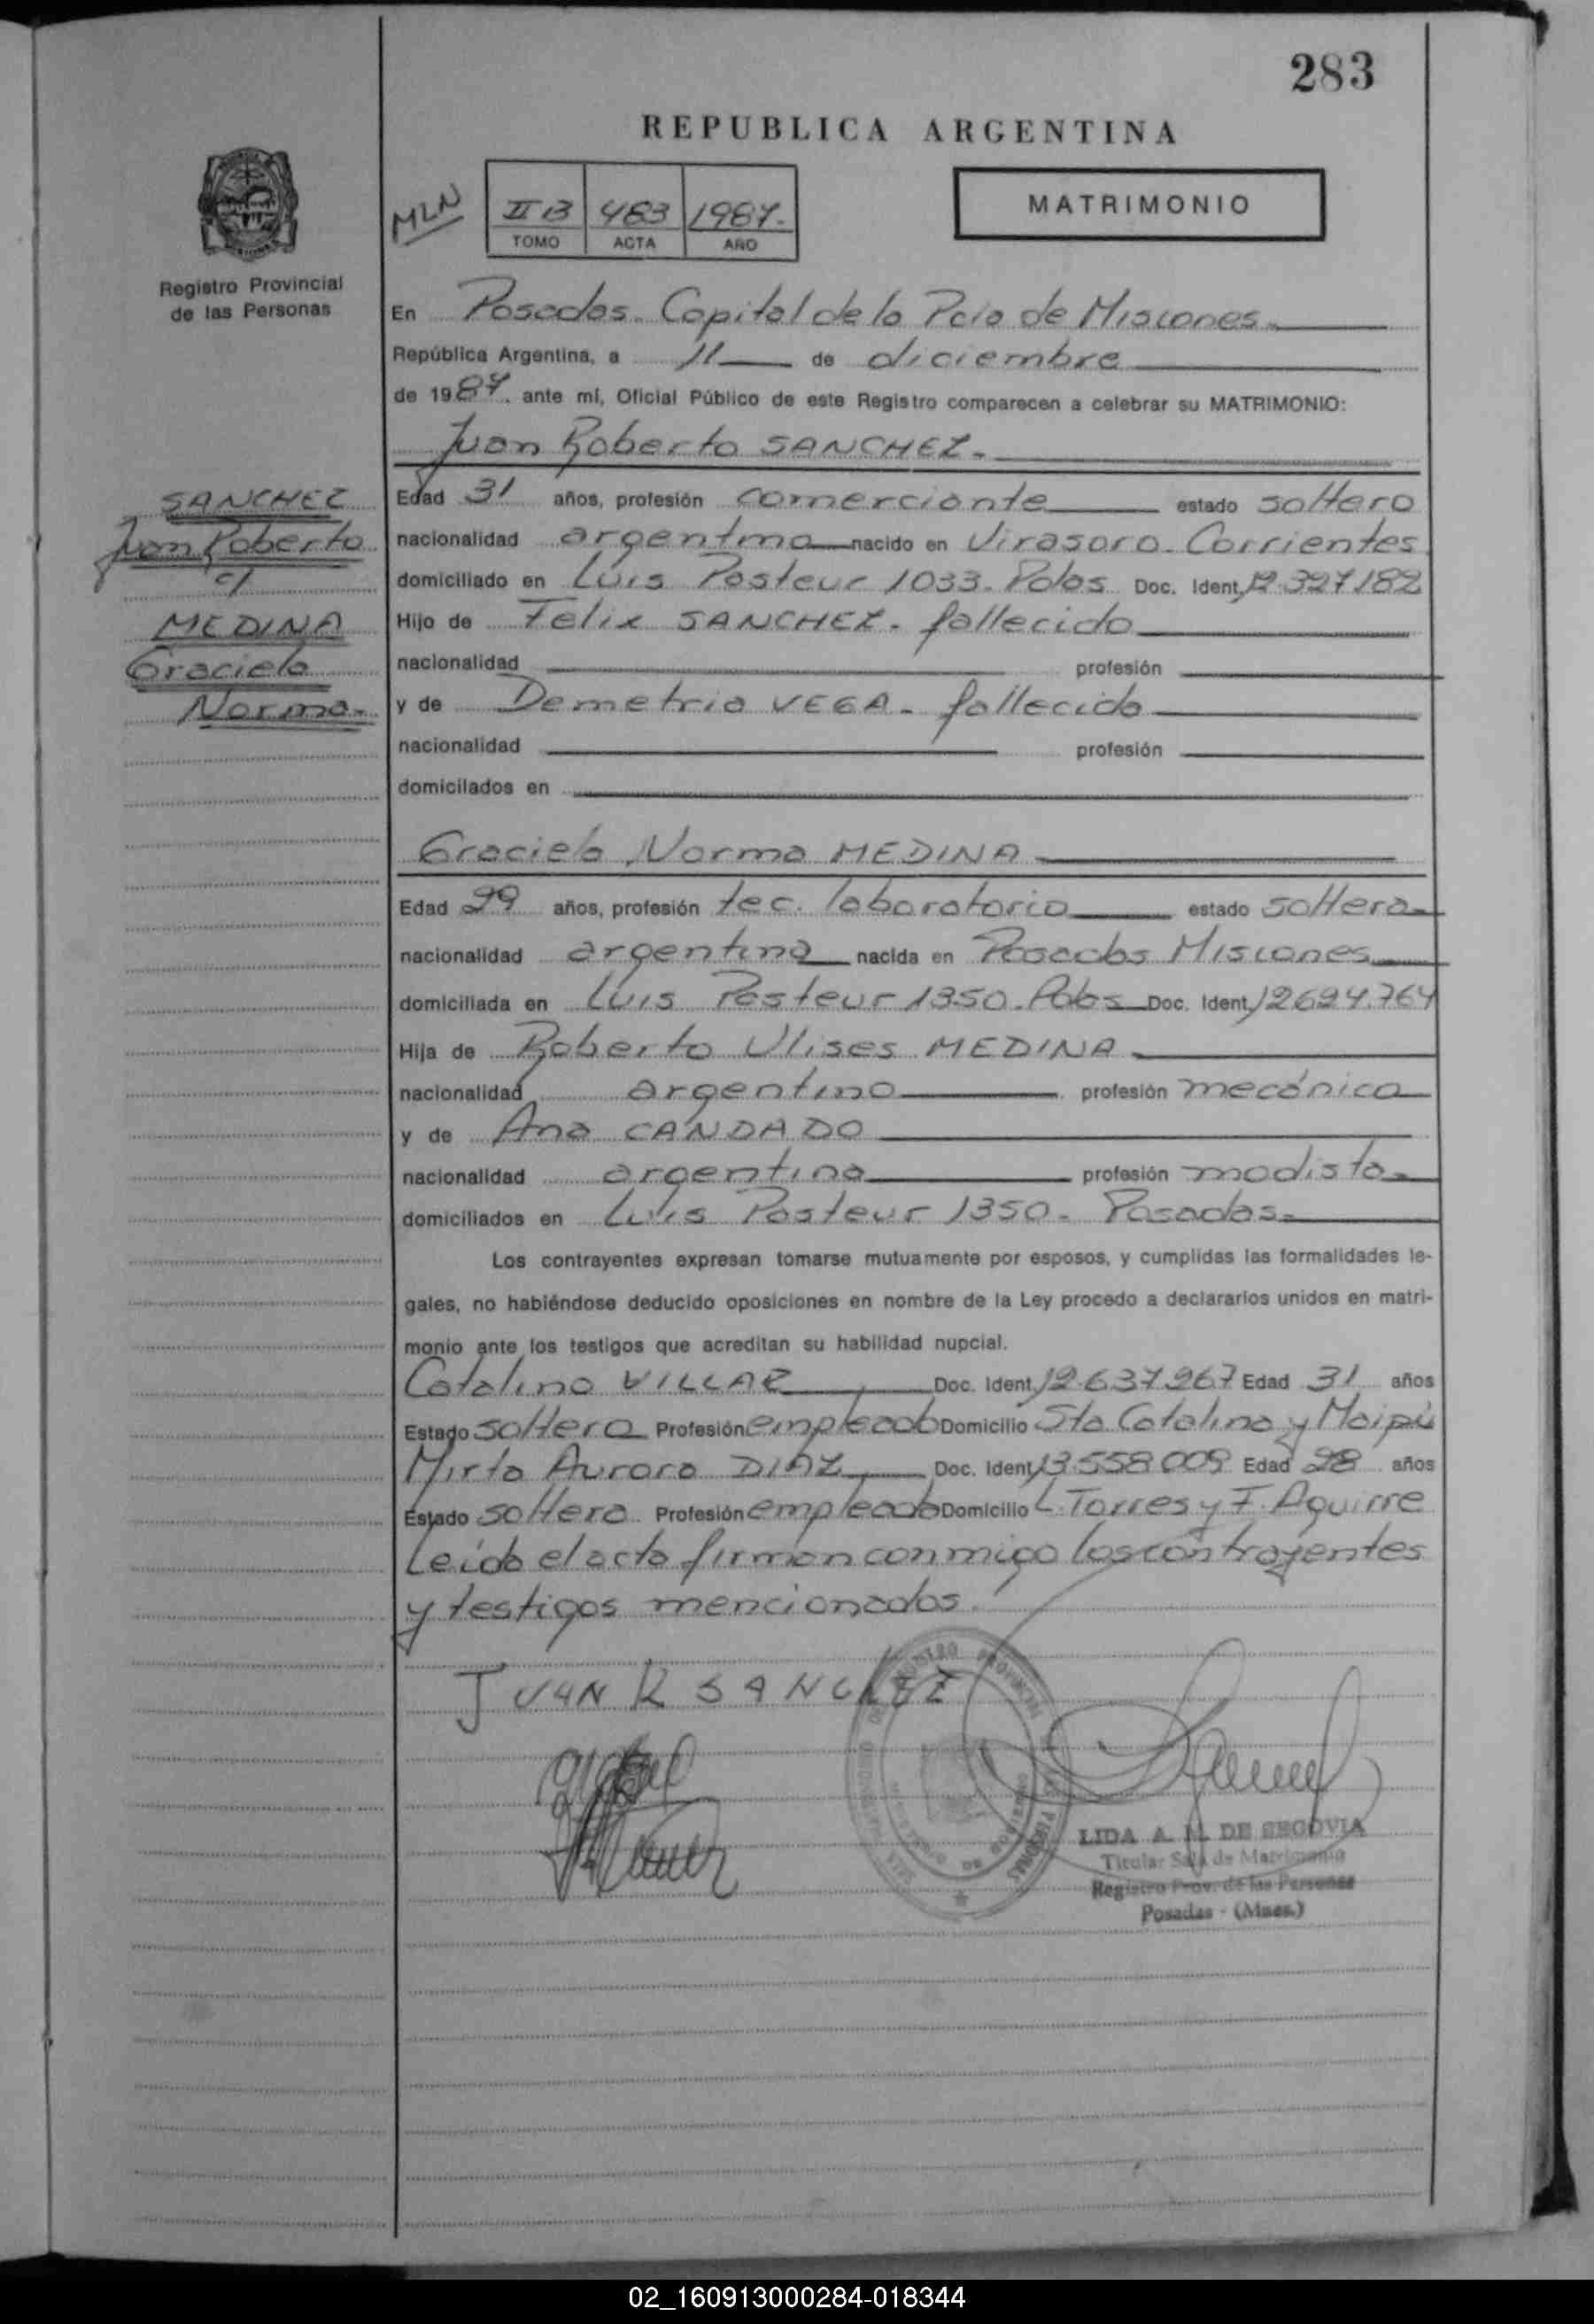 283
REPUBLICA ARGENTINA
MLN
II B 483 1987.
TOMO ACTA AÑO
MATRIMONIO
Registro Provincial
de las Personas
En Posadas. Capital de la Pcia de Misiones.
República Argentina, a 11 de diciembre
de 1987. ante mí, Oficial Público de este Registro comparecen a celebrar su MATRIMONIO:
Juan Roberto SANCHEZ.
SANCHEZ
Juan Roberto
c/
MEDINA
Graciela
Norma.
Edad 31 años, profesión comerciante estado soltero
nacionalidad argentino nacido en Virasoro. Corrientes
domiciliado en Luis Pasteur 1033. Pdas Doc. Ident. 12.327.182
Hijo de Felix SANCHEZ. fallecido
nacionalidad profesión
y de Demetria VEGA. fallecida
nacionalidad profesión
domicilados en
Graciela Norma MEDINA
Edad 29 años, profesión tec. laboratorio estado soltera
nacionalidad argentina nacida en Posadas Misiones
domiciliada en Luis Pasteur 1350. Pdas Doc. Ident. 12694.764
Hija de Roberto Ulises MEDINA
nacionalidad argentino profesión mecánico
y de Ana CANDADO
nacionalidad argentina profesión modista
domiciliados en Luis Pasteur 1350. Posadas.
Los contrayentes expresan tomarse mutuamente por esposos, y cumplidas las formalidades le-
gales, no habiéndose deducido oposiciones en nombre de la Ley procedo a declararlos unidos en matri-
monio ante los testigos que acreditan su habilidad nupcial.
Catalino VILLAR Doc. Ident. 12.637.267 Edad 31 años
Estado soltero Profesión empleado Domicilio Sta Catalina y Maipú
Mirta Aurora DIAZ Doc. Ident. 13.558.009 Edad 28 años
Estado soltera Profesión empleada Domicilio L. Torres y F. Aguirre
Leída el acta firman conmigo los contrayentes
y testigos mencionados.
JUAN R SANCHEZ
LIDA A. M. DE SEGOVIA
Titular Sala de Matrimonio
Registro Prov. de las Personas
Posadas - (Mnes.)
02_160913000284-018344